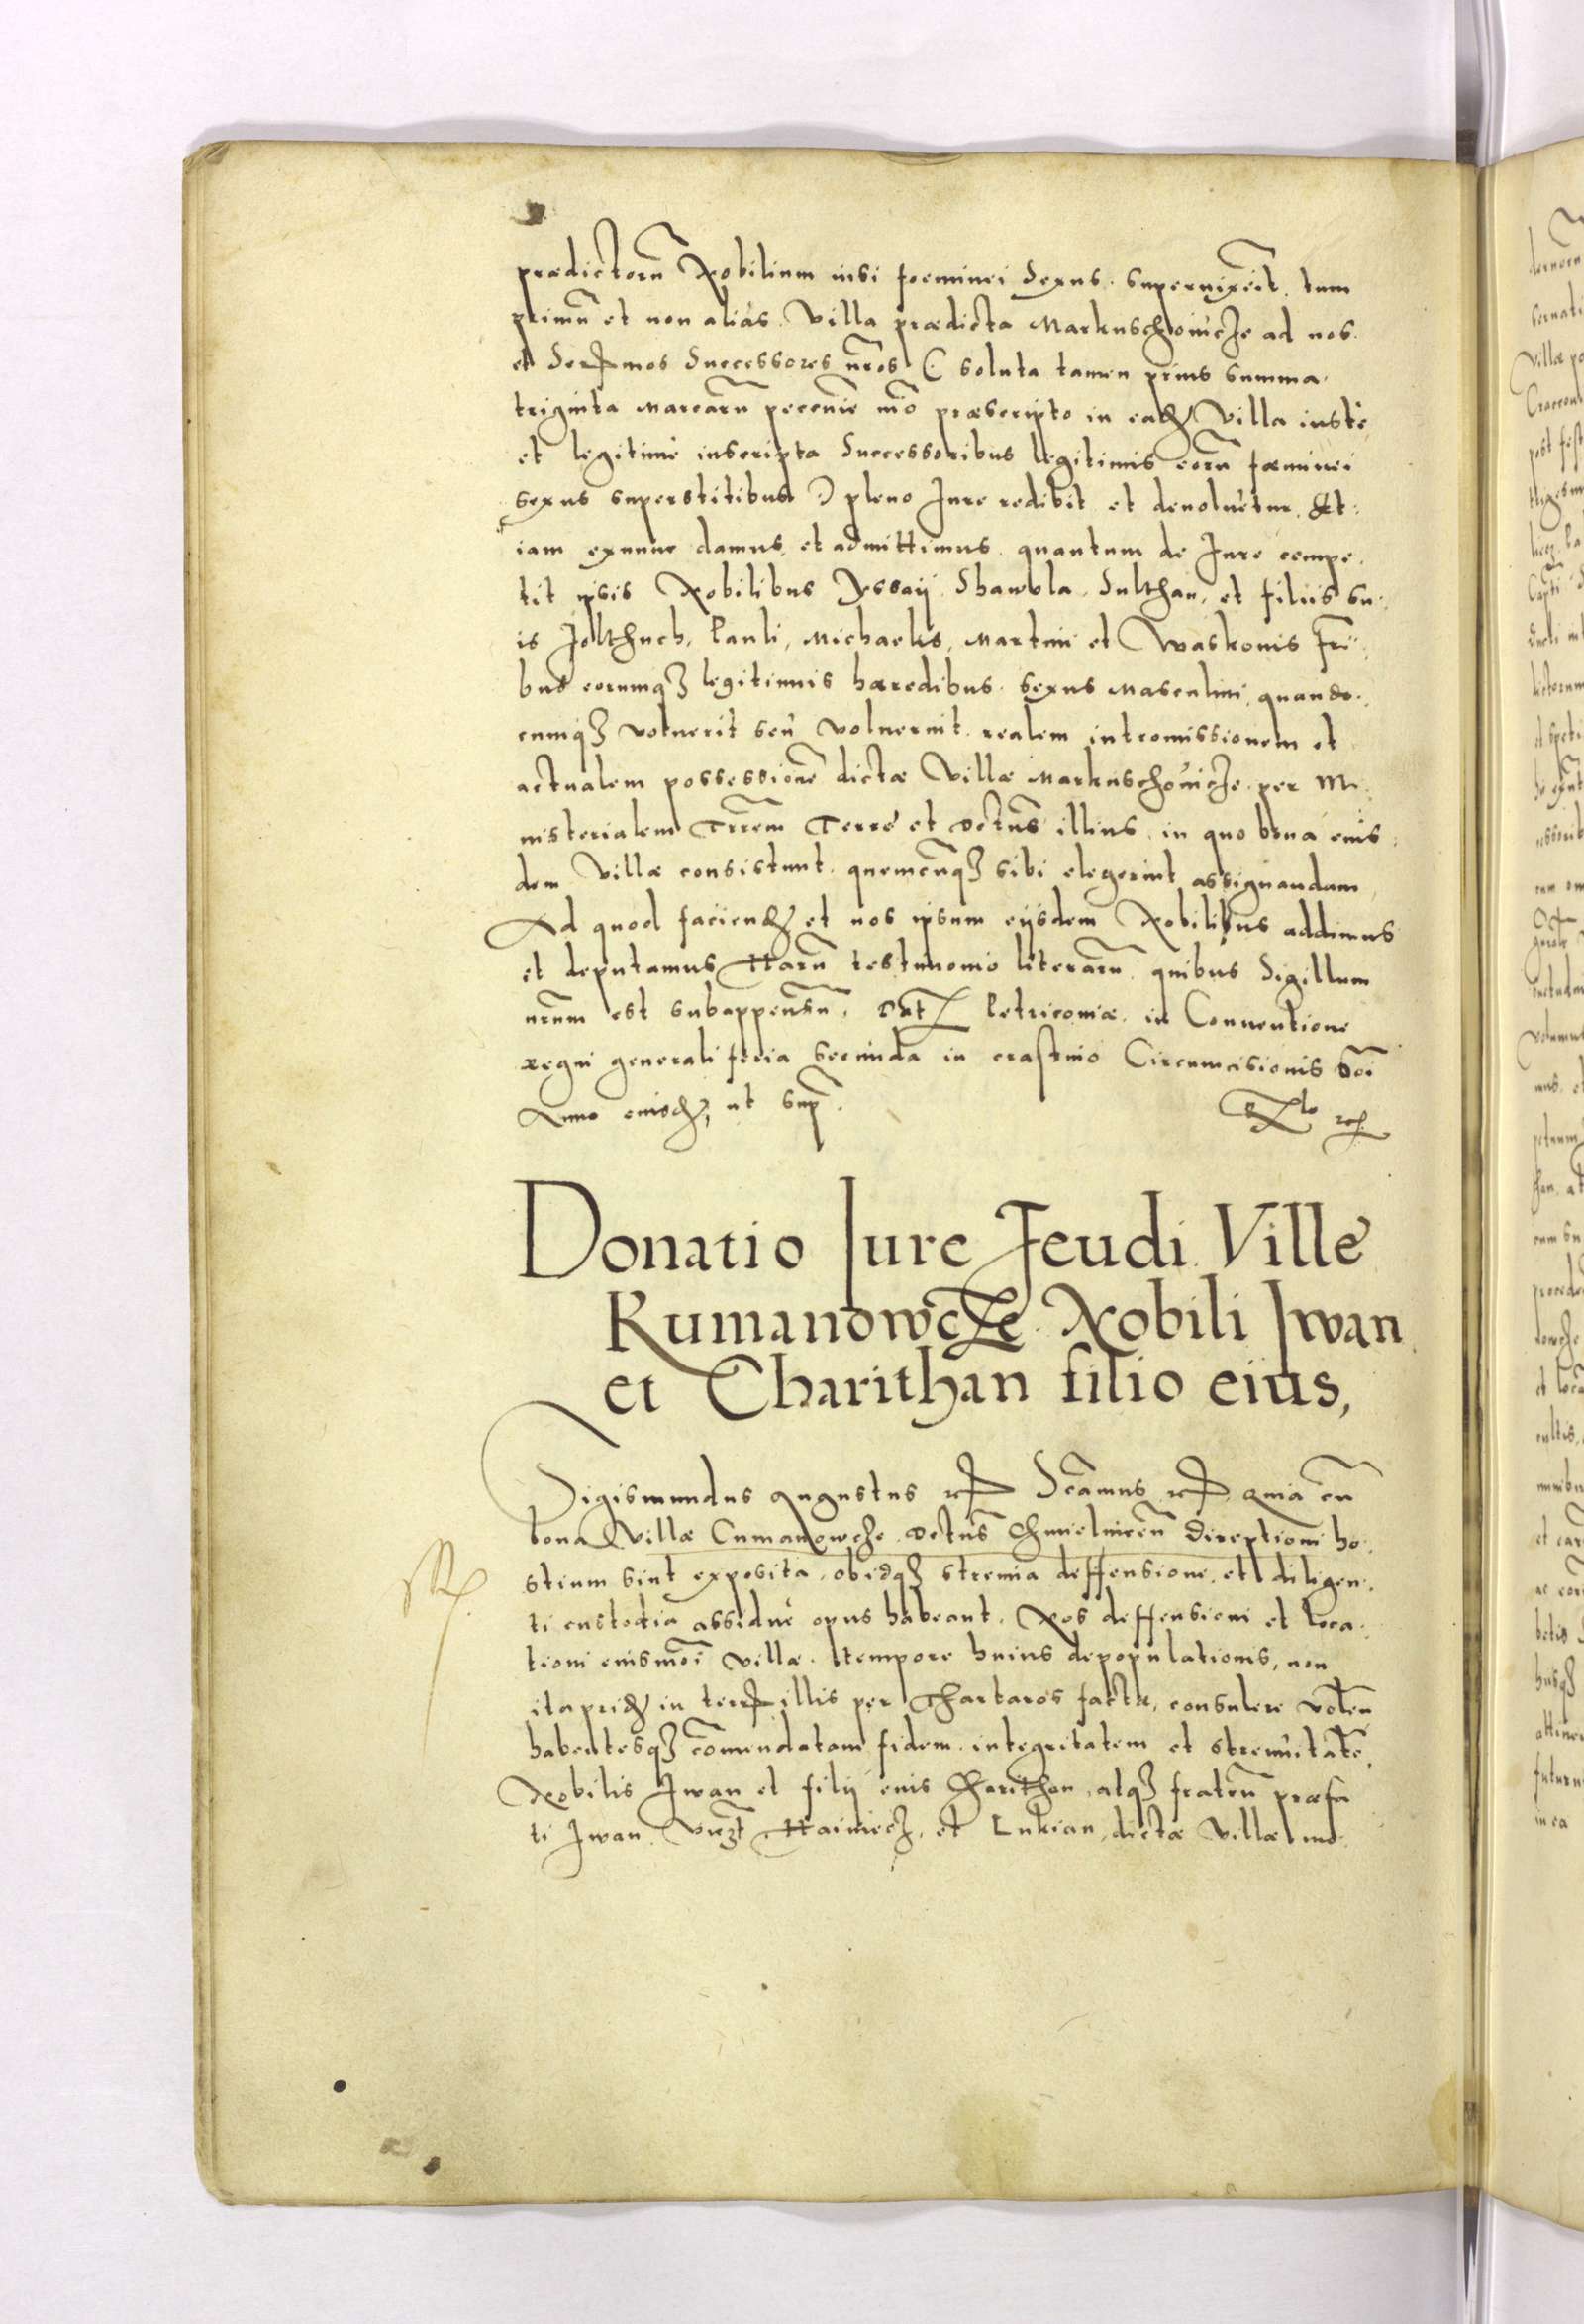 prædictorũ Nobilium nisi foeminei Sexus. supervixerit. tum
primũ et non aliàs Villa prædicta Markuschowicze ad nos.
et Sermos Successores nr̃os (: soluta tamen prius summa.
triginta Marcarũ pecunie mõ præscripto in eadẽ Villa iustè
et legitimè inscripta Successoribus legitimis eorũ fœminei
sexus superstitibus :) pleno Jure redibit et devoluetur. Et:
iam exnunc damus et admittimus. quantum de Jure compe.
tit ipsis Nobilibus Jessaij Shawula. Sulthan, et filiis su.
is Jolthuch, Pauli, Michaelis, Martini et Waskonis fr̃i.
bus eorumqꝫ legitimis hæredibus. sexus Masculini, quando.
cumqꝫ voluerit seu voluerint. realem intromissionem et
actualem possessionẽ dictæ Villæ Markuschowicze per Mi.
nisterialem Trr̃em Terre et Dctus̃ illius, in quo bona eius
dem Villæ consistunt. quemcũqꝫ sibi elegerint assignandam
Ad quod faciendꝫ et nos ipsum eijsdem Nobilibus addimus
et deputamus Harũ testimonio literarũ quibus Sigillum
nrũm est subappensũ. Datꝫ Petricoviæ. in Conventione
regni generali feria secunda in crastino Circumcisionis Dñi
Anno eiusdꝫ, ut sup.
Donatio Jure Feudi Ville
Kumanowcze Nobili Iwan
et Charithan filio eius,
Sigismundus Augustus rꝫ Scãmus rꝫ Quia cũ
bona Villæ Cumanowcze Dctus̃ Chmielnicen̄ direptioni ho.
stium sint exposita, obidqꝫ strenua deffensione, et diligen.
ti custodia assiduè opus habeant. Nos deffensioni et loca.
tioni eiusmõi villæ. tempore huius depopulationis, non
itapridꝫ in terris illis per Thartaros factæ, consulere volen̄
habentesqꝫ cõmendatam fidem. integritatem et strenuitatẽ,
Nobilis Iwan et filij eius Charithon, atqꝫ fratrũ præfa
ti Iwan. Haimiecz, et Lukian, dictæ Villæ